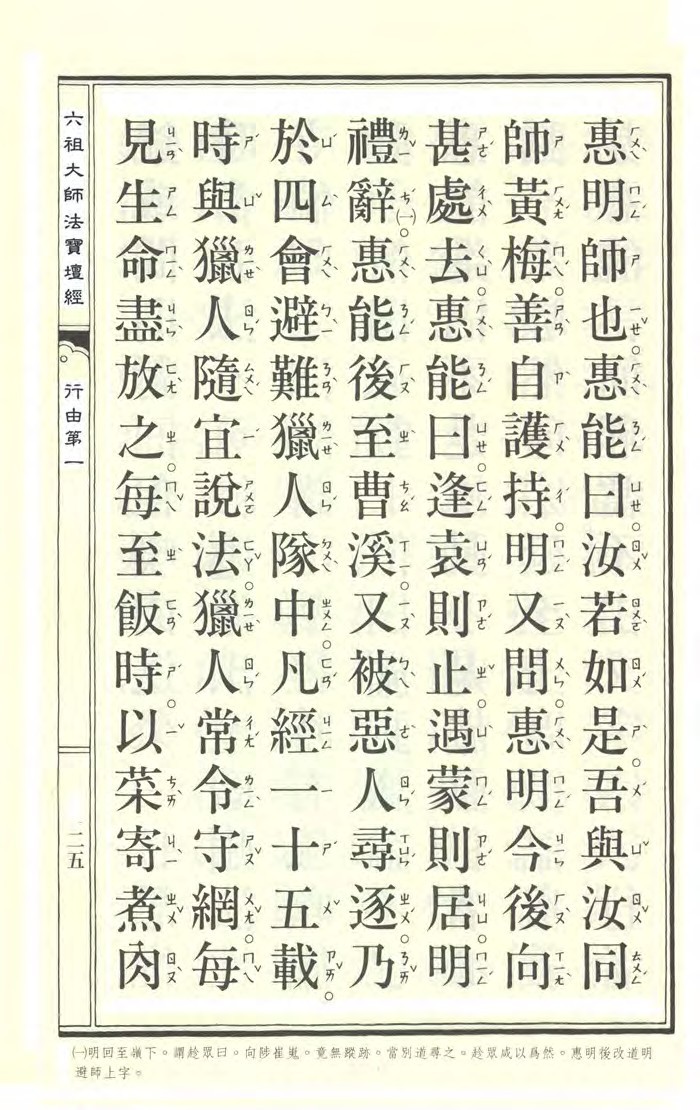 惠明師也。惠能曰。汝若如是。吾與汝同
師黃梅。善自護持。明又問。惠明今後向
甚處去。惠能曰。逢袁則止。遇蒙則居。明
禮辭㈠。惠能後至曹溪。又被惡人尋逐。乃
於四會避難獵人隊中。凡經一十五載。
時與獵人隨宜說法。獵人常令守網。每
見生命盡放之。每至飯時。以菜寄煮肉
六祖大師法寶壇經
行由第一
二五
㈠明回至嶺下。謂趁眾曰。向陟崔嵬。竟無蹤跡。當別道尋之。趁眾咸以爲然。惠明後改道明
避師上字。